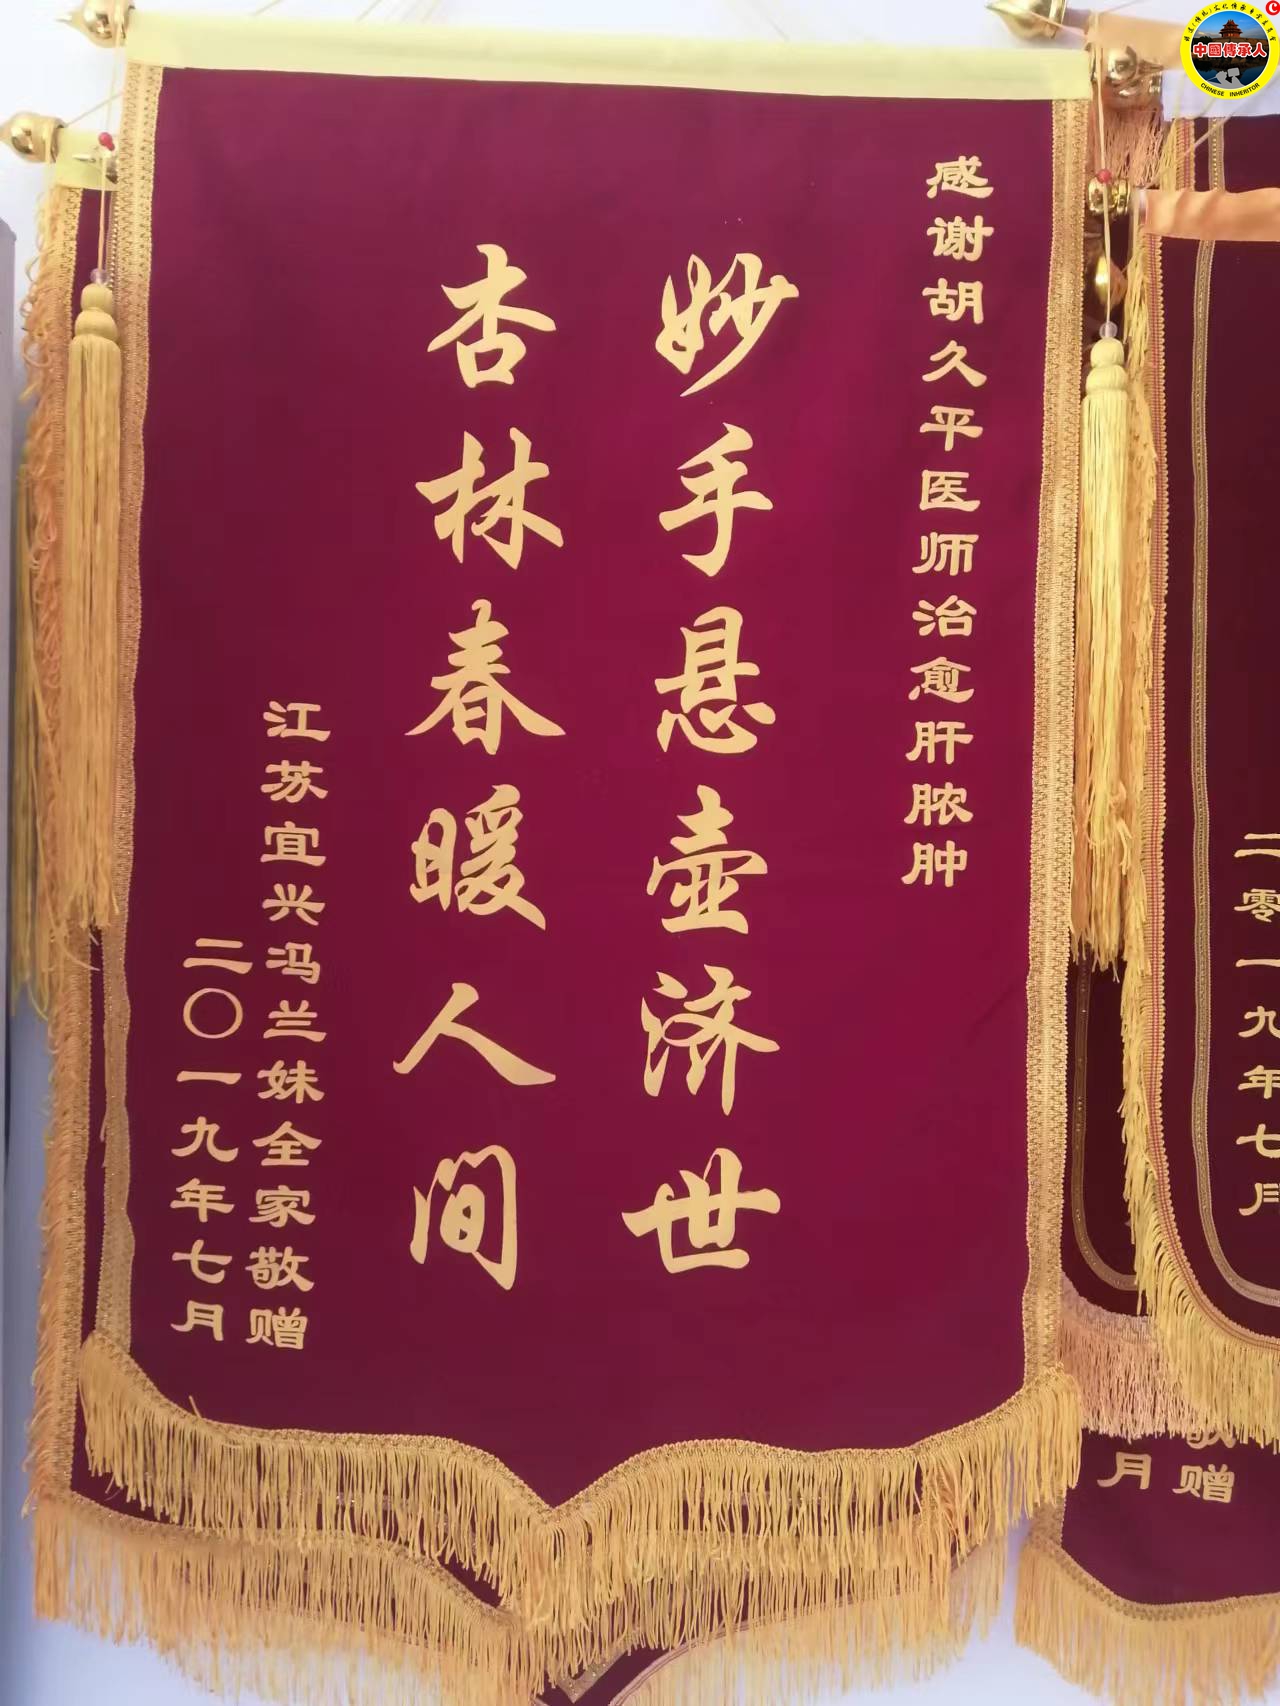 感谢胡久平医师治愈肝脓肿
妙手悬壶济世
杏林春暖人间
江苏宜兴冯兰妹全家敬赠
二〇一九年七月
二零一九年七月
敬赠
月
中國傳承人
CHINESE INHERITOR